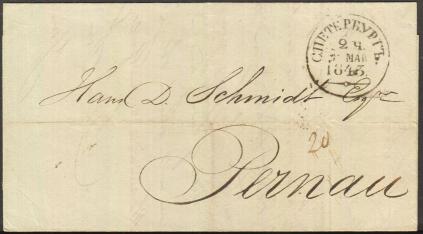 С.ПЕТЕРБУРГЪ.
2 Ч.
МАЯ
1843
Hans D. Schmidt Esqre
20
Pernau